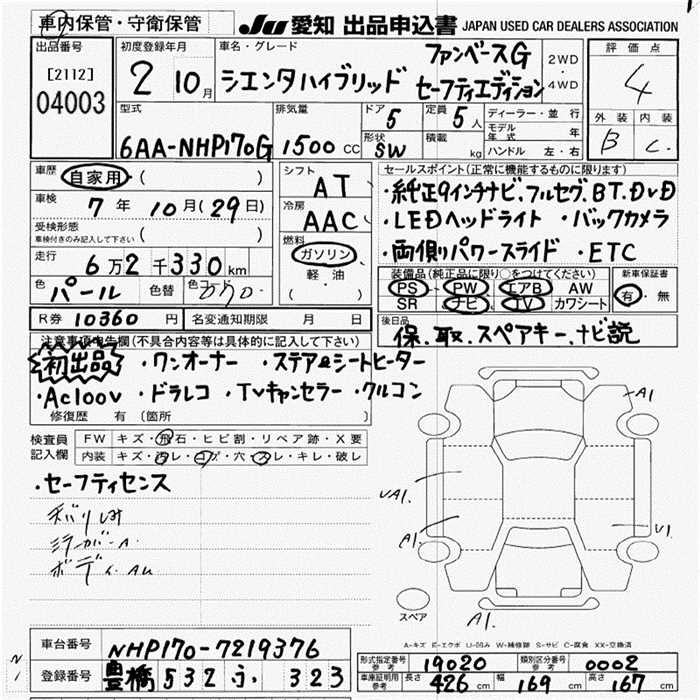 車内保管・守衛保管
JU 愛知 出品申込書 JAPAN USED CAR DEALERS ASSOCIATION
出品番号 初度登録年月 車名・グレード ファンベースG 2WD・4WD 評価点
[2112] 04003 2 10月 シエンタハイブリッド セーフティエディション 4
型式 排気量 ドア 5 定員 5人 ディーラー・並行 外装 内装
モデル年式 年 B C.
6AA-NHP170G 1500cc 形状 SW 積載 kg ハンドル 左・右
車歴 自家用 ( ) シフト AT セールスポイント(正常に機能するものに限ります)
・純正9インチナビ、フルセグ、BT、DVD
車検 7年 10月(29日) 冷房 AAC ・LEDヘッドライト ・バックカメラ
受検形態 車検付きのみ記入して下さい ( ) 燃料 ガソリン
・両側パワースライド ・ETC
走行 6万2千330km 軽・油 装備品(純正品に限り○をつけてください) 新車保証書
PS PW エアB AW 有・無
色 パール 色替 色コード 070. ( ) SR ナビ TV カワシート
R券 10360円 名変通知期限 月 日 後日品
保、取、スペアキー、ナビ説
注意事項申告欄(不具合内容等は具体的に記入して下さい)
初出品 ・ワンオーナー ・ステア&シートヒーター
・AC100V ・ドラレコ ・TVキャンセラー ・クルコン
修復歴 有 〔箇所 〕
検査員記入欄 FW キズ・飛石・ヒビ割・リペア跡・X要
内装 キズ・汚レ・コゲ・穴・スレ・キレ・破レ
・セーフティセンス
ミラーカバーA
A1
UA1.
A1.
V1
A1.
スペア
A-キズ E-エクボ U-凹み W-補修跡 S-サビ C-腐食 XX-交換済
車台番号 NHP170-7219376
登録番号 豊橋 532 ふ 323
形式指定番号 参考 19020 類別区分番号 参考 0002
車庫証明用 参考 長さ 426cm 幅 169cm 高さ 167cm